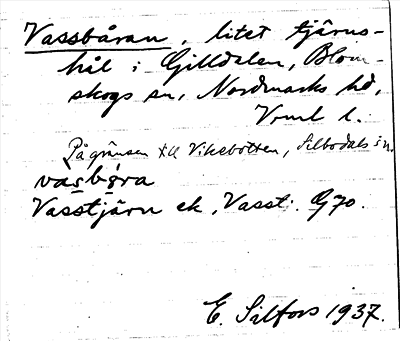 Vassbåran, litet tjärns-
hål i Gilldalen, Blom-
skogs sn, Nordmarks hd,
Vrml l.
På gränsen till Viksbotten, Silbodals sn.
vasbɷra
Vasstjärn ek, Vasst. G70.
E. Salfors 1937.